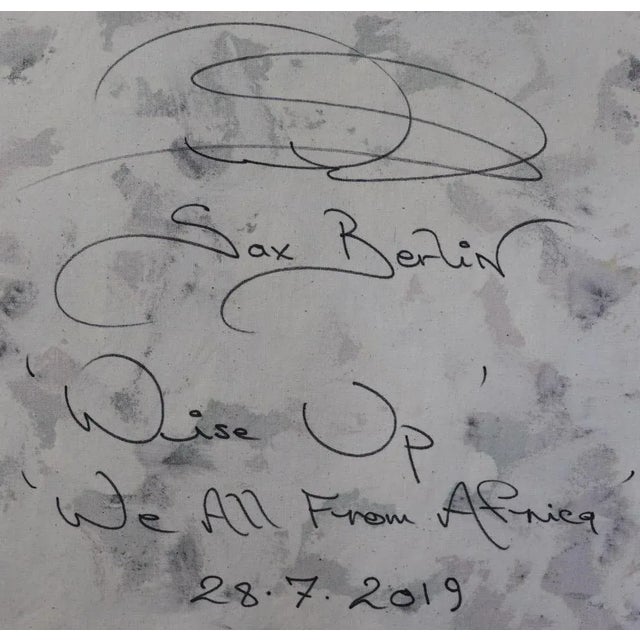 Sax Berlin
'Wise Up'
'We All From Africa'
28.7.2019